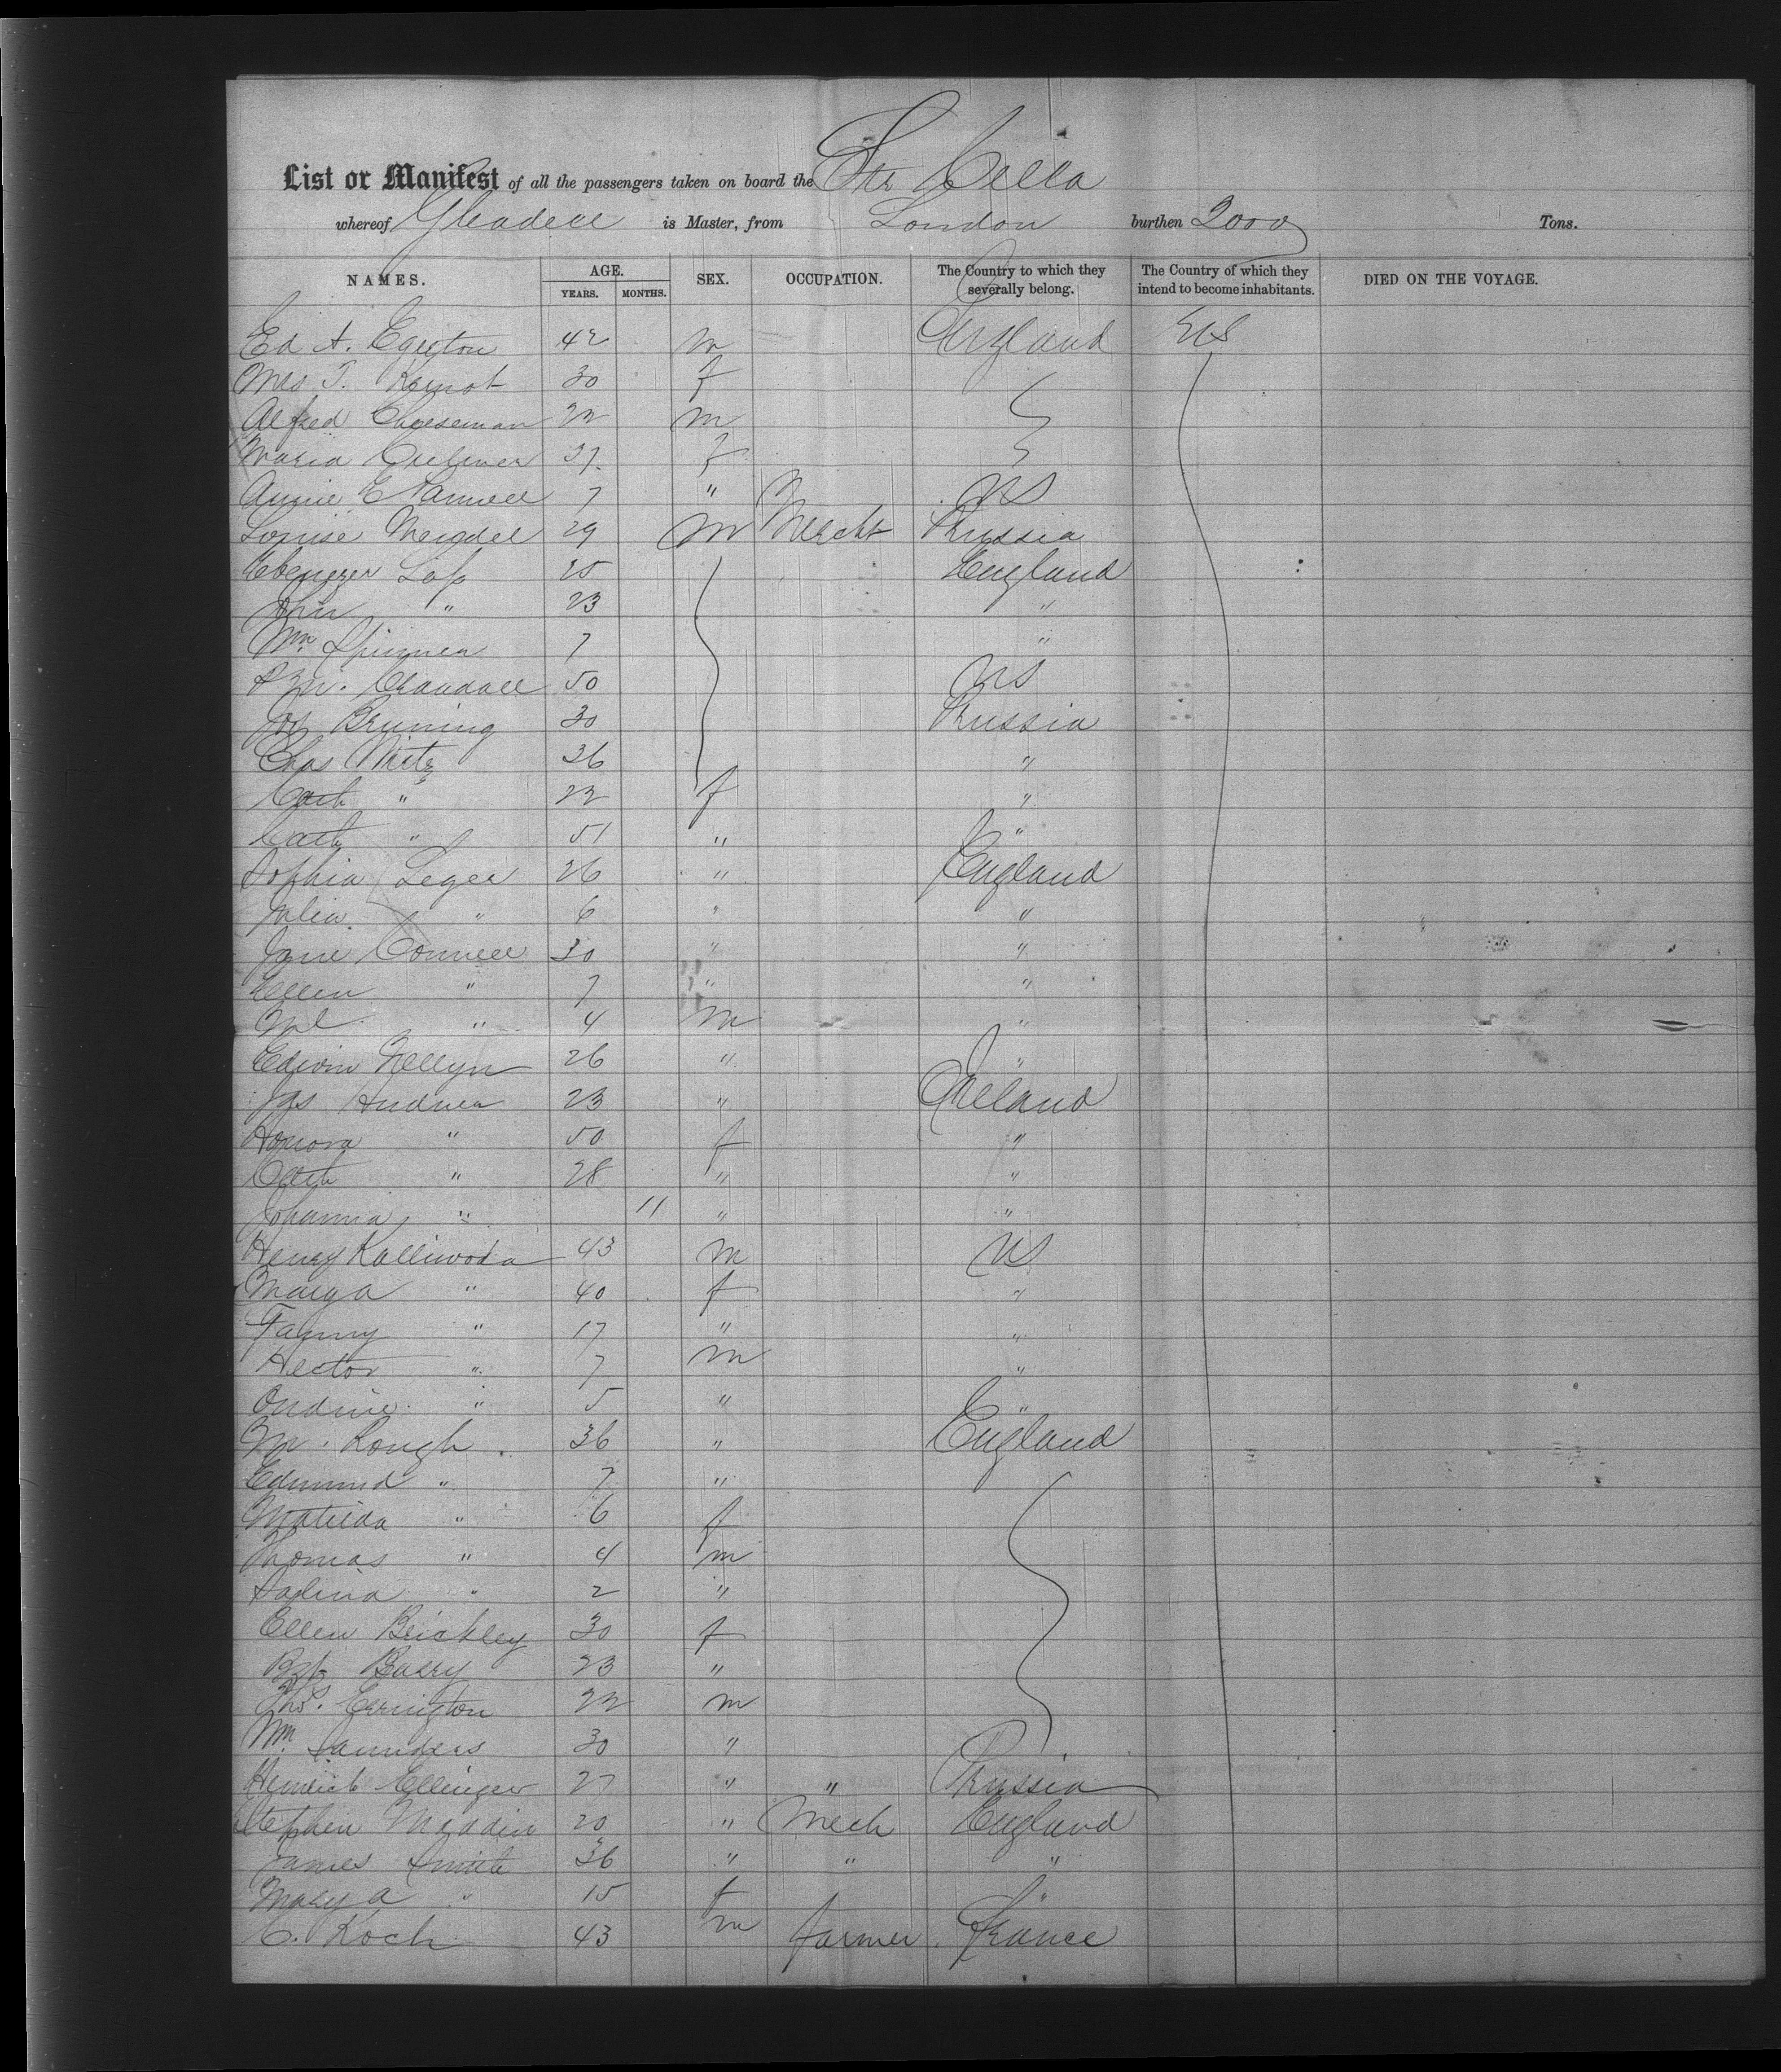 List or Manifest of all the passengers taken on board the Str Cella
whereof Gleadell is Master, from London burthen 2000 Tons.
NAMES. AGE. SEX. OCCUPATION. The Country to which they severally belong. The Country of which they intend to become inhabitants. DIED ON THE VOYAGE.
YEARS. MONTHS.
Ed A. Egerton 42 m England US
Mrs T. 30 f
Alfred Cheeseman 22 m
Maria 37 f
Annie E 7 " US
Louise Meigdel 29 m Mercht Prussia
Ebenezer 25 England
Ann " 23 "
Wm. Spinner 7 "
Crandall 50 US
Jos Bruning 30 Prussia
Chas 36 "
Cath " 22 f "
Cath " 51 " "
Sophia Leger 26 " England
Julia " 6 " "
Jane Connell 30 " "
Ellen " 7 " "
" 4 m "
Edwin 26 " "
Jas 23 " Ireland
Honora " 50 f "
Cath " 28 " "
Johanna " 11 " "
Henry Kalliwoda 43 m US
Marya " 40 f "
Fanny " 17 " "
Hector " 7 m "
Ondine " 5 " "
M. Rough 36 " England
Edmund " 7 "
Matilda " 6 f
Thomas " 4 m
" 2 "
Ellen Brickley 30 f
Barry 23 "
Thos. Errington 22 m
Wm. Saunders 30 "
Heinrich Ellinger 27 " " Prussia
Stephen 20 " Mech England
James Smith 36 " " "
Mary A " 15 f "
C. Koch 43 m farmer France